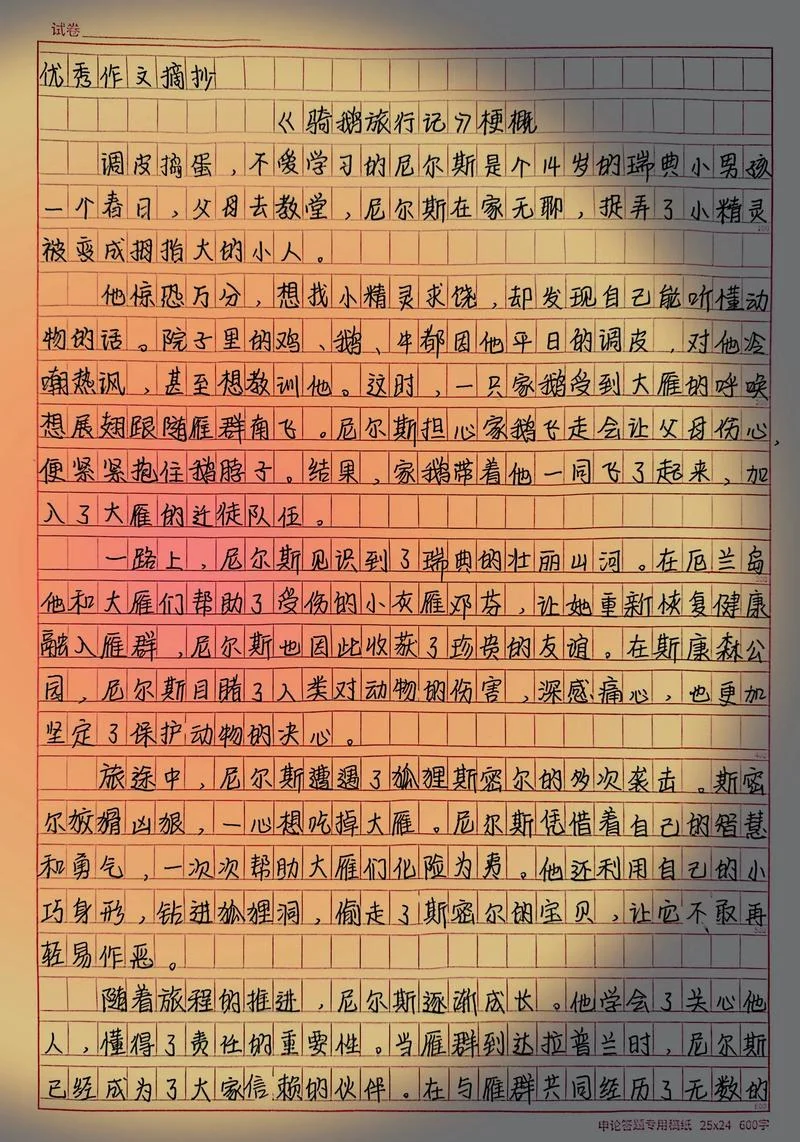 试卷
优秀作文摘抄
《骑鹅旅行记》梗概
调皮捣蛋，不爱学习的尼尔斯是个14岁的瑞典小男孩
一个春日，父母去教堂，尼尔斯在家无聊，捉弄了小精灵
被变成拇指大的小人。
他惊恐万分，想找小精灵求饶，却发现自己能听懂动
物的话。院子里的鸡、鹅、牛都因他平日的调皮，对他冷
嘲热讽，甚至想教训他。这时，一只家鹅受到大雁的呼唤
想展翅跟随雁群南飞。尼尔斯担心家鹅飞走会让父母伤心，
便紧紧抱住鹅脖子。结果，家鹅带着他一同飞了起来，加
入了大雁的迁徒队伍。
一路上，尼尔斯见识到了瑞典的壮丽山河。在厄兰岛
他和大雁们帮助了受伤的小灰雁邓芬，让她重新恢复健康
融入雁群，尼尔斯也因此收获了珍贵的友谊。在斯康森公
园，尼尔斯目睹了人类对动物的伤害，深感痛心，也更加
坚定了保护动物的决心。
旅途中，尼尔斯遭遇了狐狸斯密尔的多次袭击。斯密
尔狡猾凶狠，一心想吃掉大雁。尼尔斯凭借着自己的智慧
和勇气，一次次帮助大雁们化险为夷。他还利用自己的小
巧身形，钻进狐狸洞，偷走了斯密尔的宝贝，让它不敢再
轻易作恶。
随着旅程的推进，尼尔斯逐渐成长。他学会了关心他
人，懂得了责任的重要性。当雁群到达拉普兰时，尼尔斯
已经成为了大家信赖的伙伴。在与雁群共同经历了无数的
申论答题专用稿纸 25x24 600字